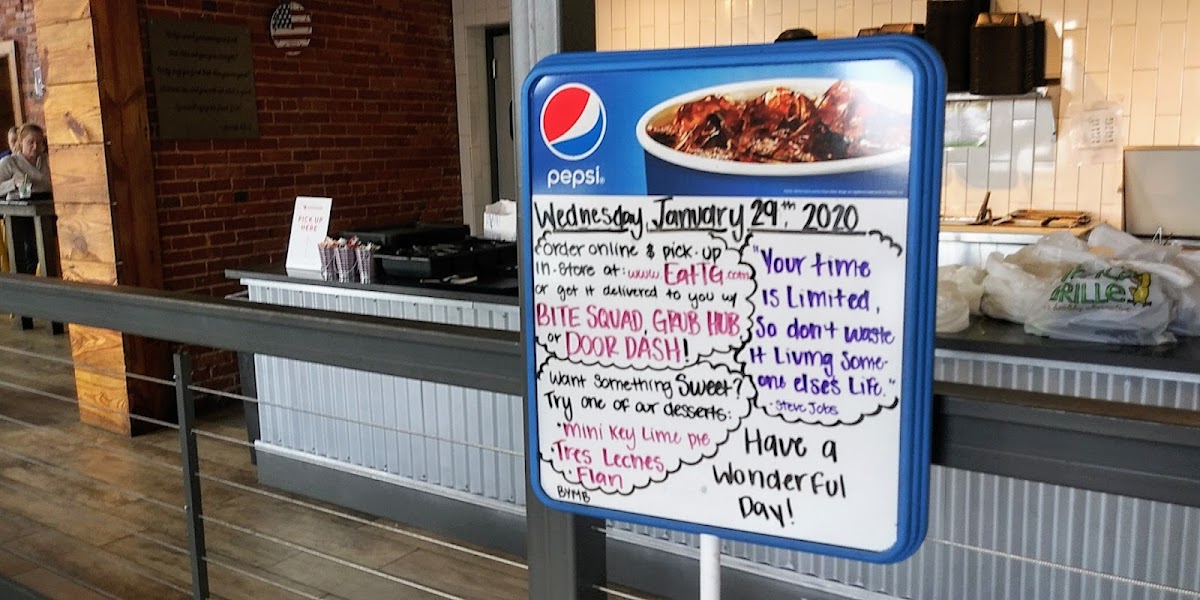 pepsi
Wednesday, January 29th, 2020
Order online & pick-up
in-store at: www.EatTG.com
or get it delivered to you w/
BITE SQUAD, GRUB HUB,
or DOOR DASH!
"Your time
is Limited,
So don't waste
it Living Some-
one else's Life."
- Steve Jobs
Want Something Sweet?
Try one of our desserts:
• mini Key Lime pie
• Tres Leches
• Flan
BYMB
Have a
Wonderful
Day!
PICK UP
HERE